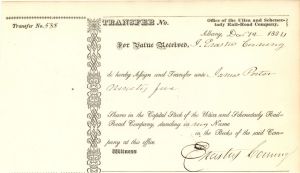 Transfer No. 535
TRANSFER No.
Office of the Utica and Schenectady Rail-Road Company.
Albany, Dec 12 183
For Value Received, I Erastus Corning
do hereby Assign and Transfer unto James Porter
Ninety five
Shares in the Capital Stock of the Utica and Schenectady Rail-
Road Company, standing in my Name
in the Books of the said Com-
pany at this office.
Witness
Erastus Corning